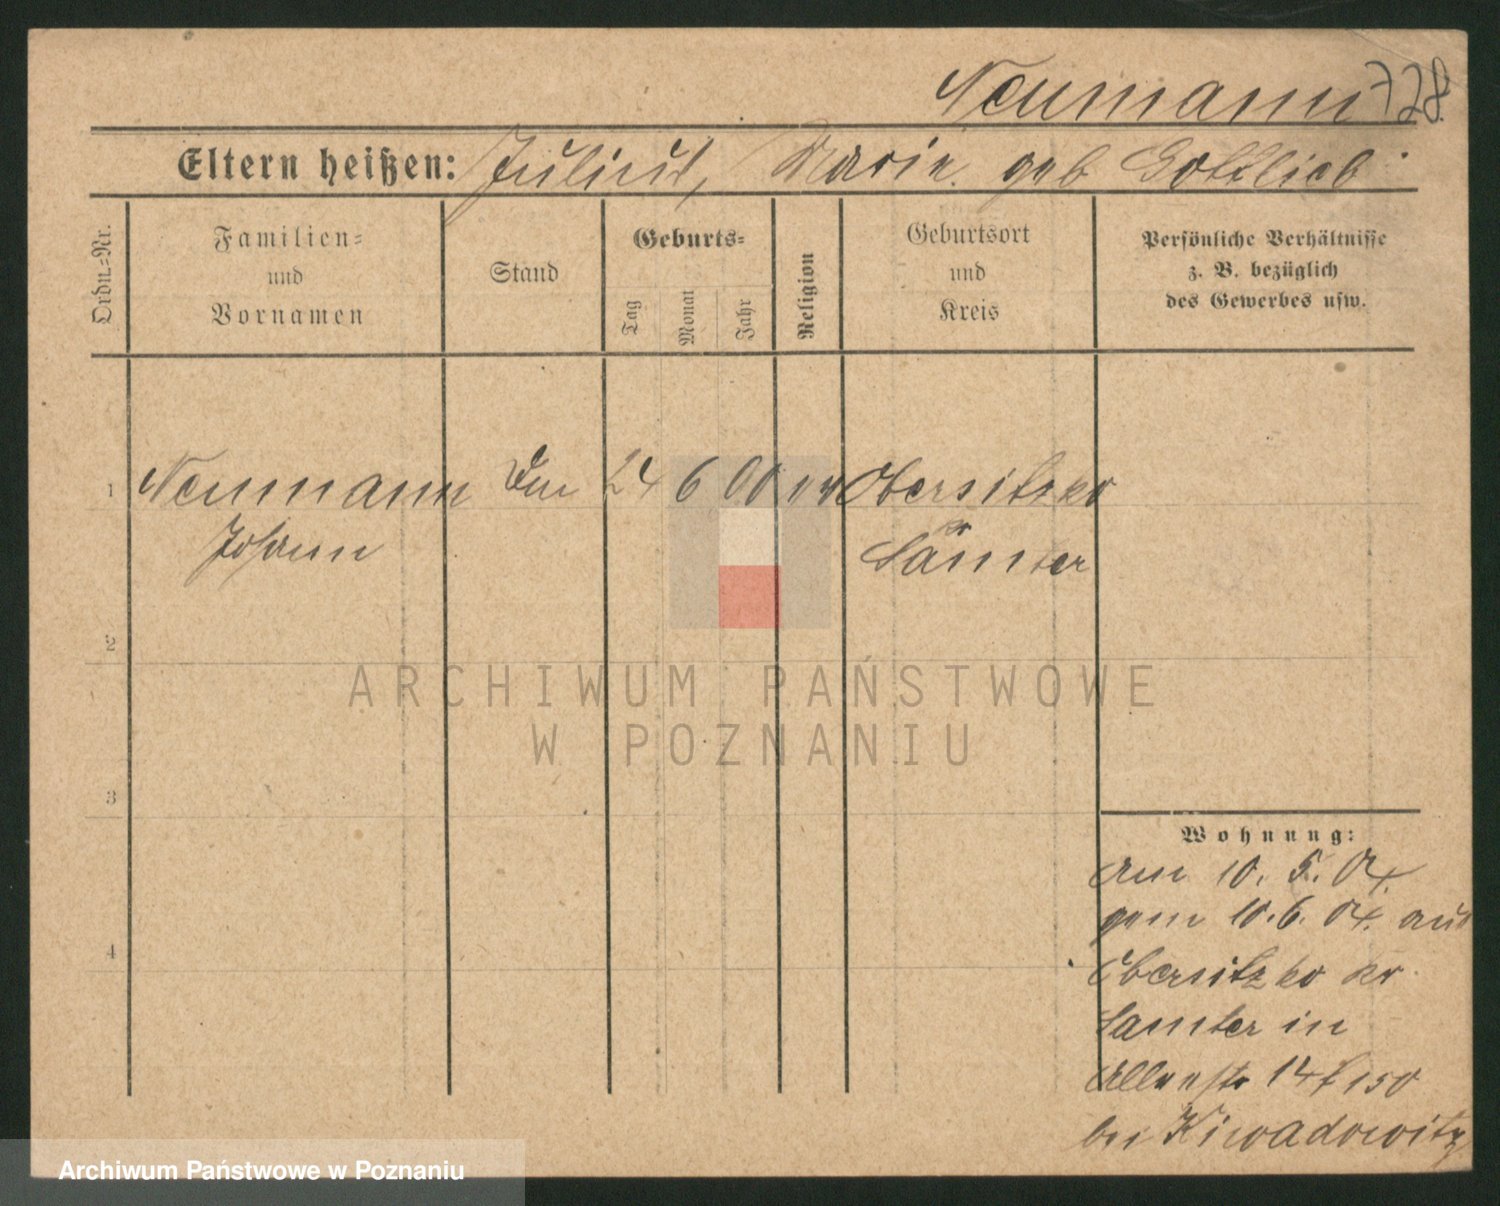 Neumann 728.
Eltern heißen: Julius, Marie geb Gottlieb
Ordn.=Nr.
Familien=
und
Vornamen
Stand
Geburts=
Tag
Monat
Jahr
Religion
Geburtsort
und
Kreis
Persönliche Verhältnisse
z. B. bezüglich
des Gewerbes usw.
1 Neumann 24 6 00 Obersitzko
Johann Samter
2
3
4
ARCHIWUM PAŃSTWOWE
W POZNANIU
Wohnung:
am 10. 5. 04.
gem 10. 6. 04. aus
Obersitzko Kr
Samter in
14
bei
Archiwum Państwowe w Poznaniu